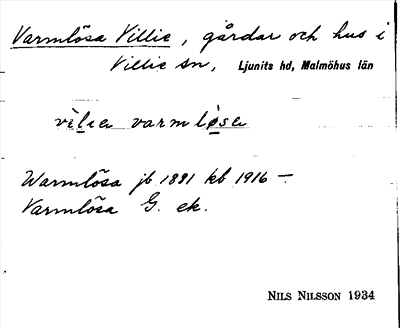 Varmlösa Villie, gårdar och hus i
Villie sn, Ljunits hd, Malmöhus län
varmlø̀sa
Warmlösa jb 1881 kb 1916 –
Varmlösa G. ek.
NILS NILSSON 1934